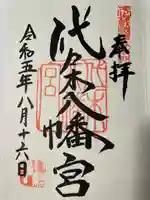 奉拝
代々木八幡宮
令和五年八月十六日